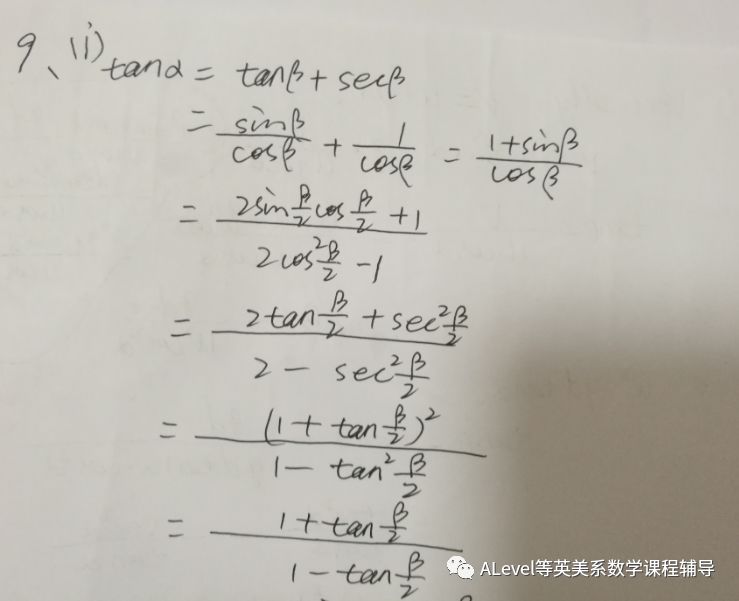 9、(i) tanα = tanβ + secβ
= \frac{sinβ}{cosβ} + \frac{1}{cosβ} = \frac{1+sinβ}{cosβ}
= \frac{2sin\frac{β}{2}cos\frac{β}{2} + 1}{2cos^2\frac{β}{2} - 1}
= \frac{2tan\frac{β}{2} + sec^2\frac{β}{2}}{2 - sec^2\frac{β}{2}}
= \frac{(1 + tan\frac{β}{2})^2}{1 - tan^2\frac{β}{2}}
= \frac{1 + tan\frac{β}{2}}{1 - tan\frac{β}{2}}
ALevel等英美系数学课程辅导